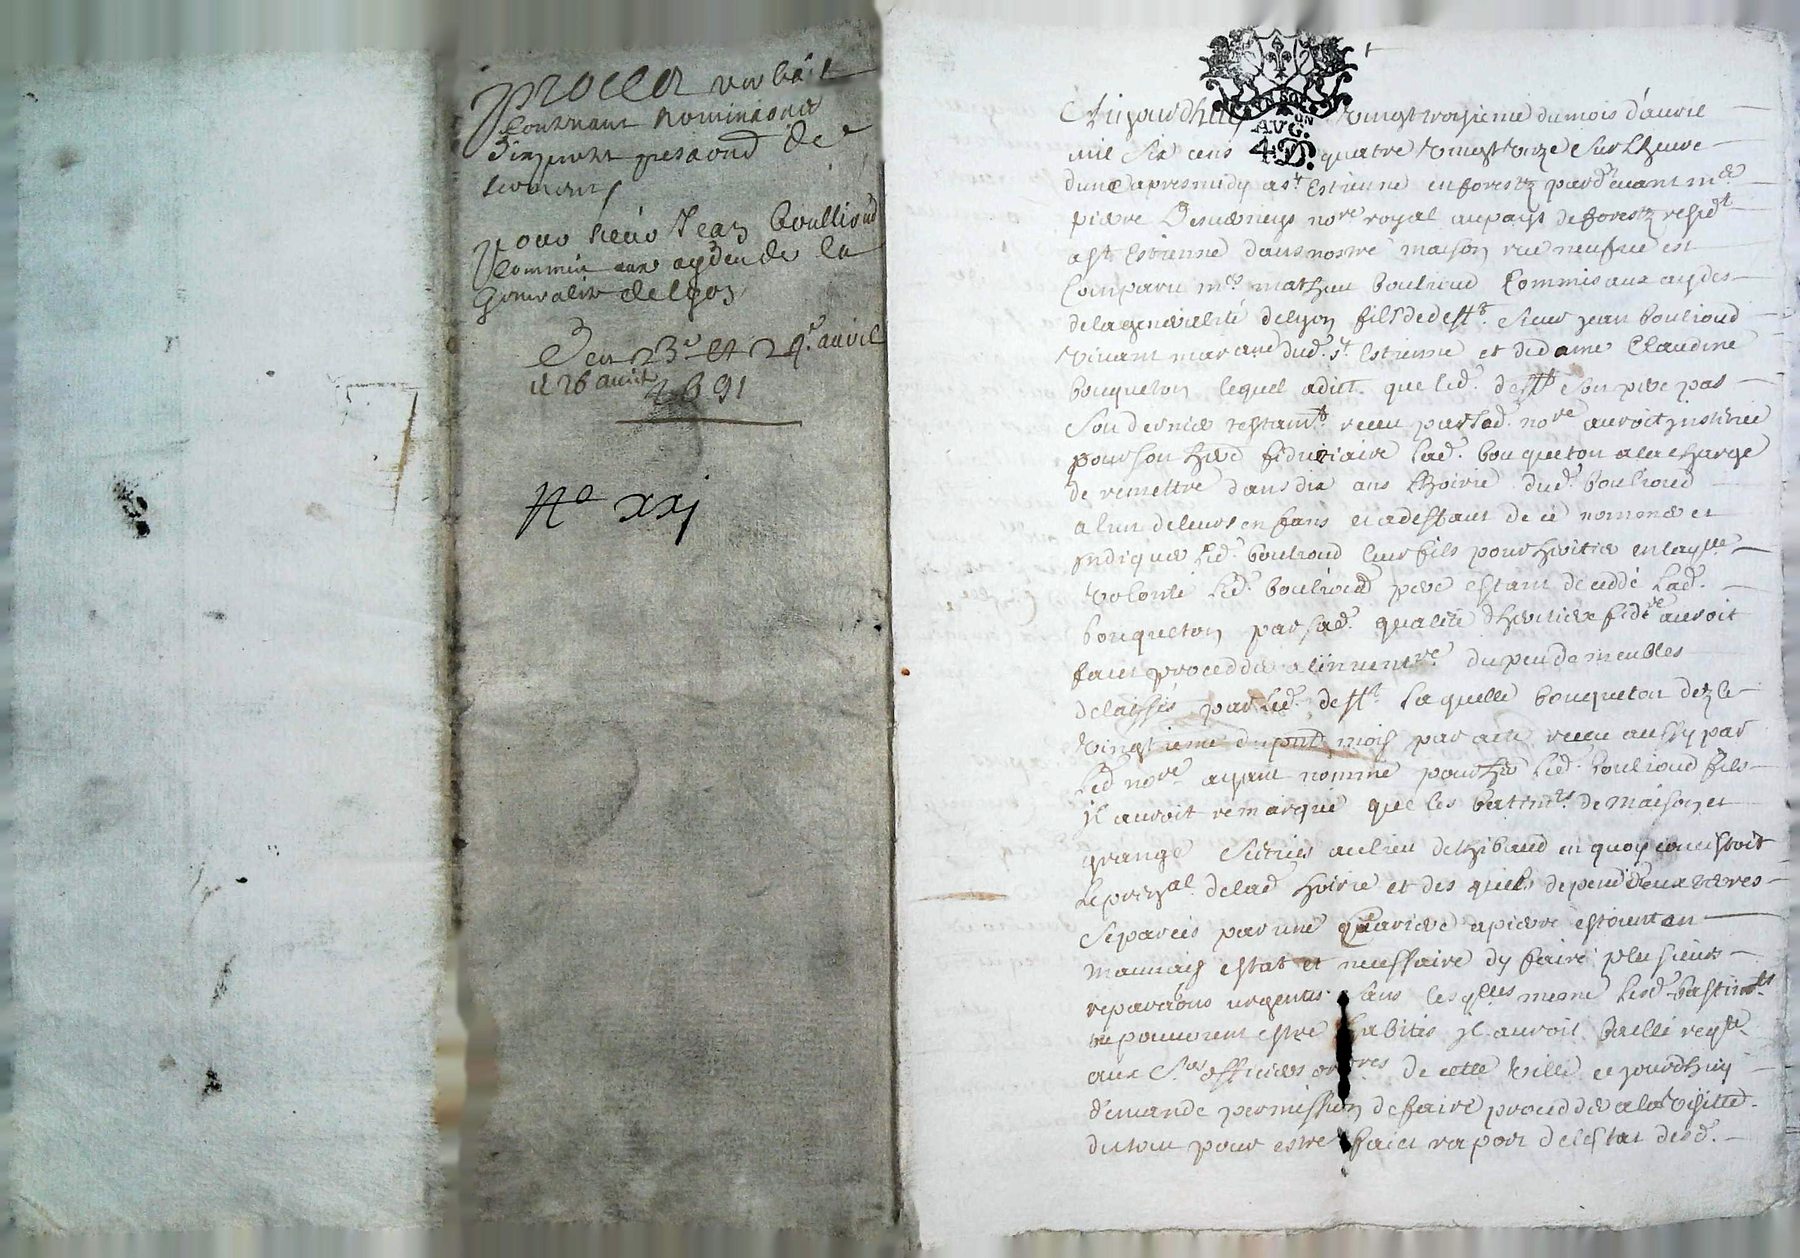 Procer verbal
Contenant nomination
d'expertz prestaond de
sermens
pour sieur Jean Boulliond
Commis aux aydes de la
generalite de Lyon
Des 23e et 24e avril
et 26 avril 1691
No xxj
Aujourdhuy vingt troisieme du mois d'avril
mil six cens quatre vingt onze sur Lheure
dune apres midy a st Estienne en forestz pardevant me
pierre Desverneys nore royal au pays de forestz residt
a st Estienne dans nostre maison rue neufve est
Comparu me mathieu Boulioud Commis aux aydes
de la generalité de Lyon fils de defft sieur jean boulioud
vivant marand dud. st Estienne et de dame Claudine
bouqueton lequel a dict que led. defft son pere par
son dernier testamt receu par led. nore auroit institué
pour son herd fiduciaire lad. bouqueton a la charge
de remettre dans dix ans Lhoirie dud. boulioud
a lun de leurs enfans et a deffaut de ce nommer et
indiquer led. boulioud leur fils pour heritier en laqlle
volonté led. boulioud pere estant deceddé lad.
bouqueton par sad. qualité d'heritiere fidre auroit
faict procedder a linventre du peu de meubles
delaissés par led. defft laquelle bouqueton dez le
vingtieme du pnt mois par acte receu aussy par
led nore ayant nommé pour her led. boulioud fils
il auroit remarqué que les batimts de maison et
grange scitués au lieu de thibaud en quoy concistoit
le prinal de lad hoirie et des quels depend deux terres
separées par une Cariere a pierre estoient en
mauvais estat et necessaire dy faire plusieurs
reparaons urgentes sans lesqlles mesme lesd. bastimts
ne pouvoient estre habités il auroit baillé reqte
aux srs officiers orres de cette ville ce jourdhuy
demande permission de faire procedder a la visitte
du tout pour estre faict raport de lestat desd.
AVG.ON
4D.